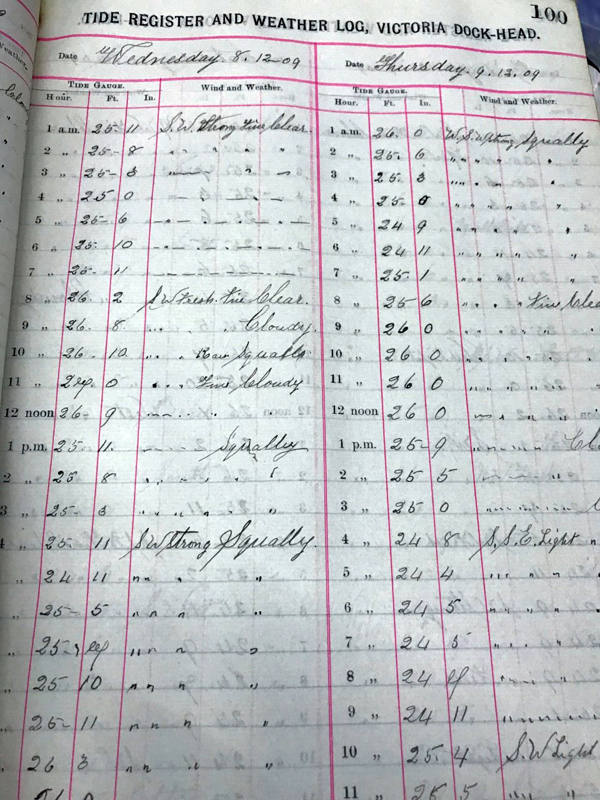 100
TIDE REGISTER AND WEATHER LOG, VICTORIA DOCK-HEAD.
Date Wednesday. 8. 12-09
TIDE GAUGE. Wind and Weather.
Hour. Ft. In.
1 a.m. 25- 11 S.W. Strong Fine Clear.
2 „ 25- 8
3 „ 25- 3
4 „ 25 0
5 „ 25- 6
6 „ 25- 10
7 „ 25- 11
8 „ 26. 2 S W Fresh. Fine Clear.
9 „ 26. 8. Cloudy.
10 „ 26. 10. Squalls
11 „ 0 Fine Cloudy
12 noon 26. 9
1 p.m. 25- 11. Squally
2 „ 25 8
3 „ 25-
4 „ 25- 11 S W Strong Squally.
„ 24 11 „ „ „ „
25- 5 „ „ „ „
25- „ „ „ „
„ 25 10 „ „ „ „
25- 11 „ „ „ „
26 3 „ „ „ „
Date Thursday. 9. 12. 09
TIDE GAUGE. Wind and Weather.
Hour. Ft. In.
1 a.m. 26. 0 Strong Squally
2 „ 25. 6
3 „ 25. 3
4 „ 25- 0
5 „ 24 9
6 „ 24 11
7 „ 25. 1
8 „ 25 6 Fine
9 „ 26 0
10 „ 26 0
11 „ 26 0
12 noon 26 0
1 p.m. 25- 9
2 „ 25 5
3 „ 25 0
4 „ 24 8 S. S. E. Light
5 „ 24 4
6 „ 24 5
7 „ 24 5
8 „ 24
9 „ 24 11
10 „ 25 4 S. W Light
11 „ 25 5